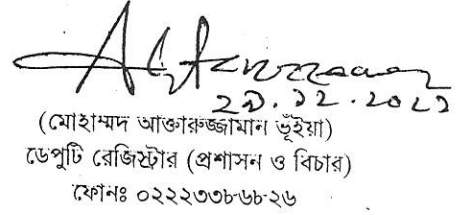 ২৯.১২.২০২২
(মোহাম্মদ আক্তারুজ্জামান ভূঁইয়া)
ডেপুটি রেজিস্ট্রার (প্রশাসন ও বিচার)
ফোনঃ ০২২২৩৩৮৬৮-২৬